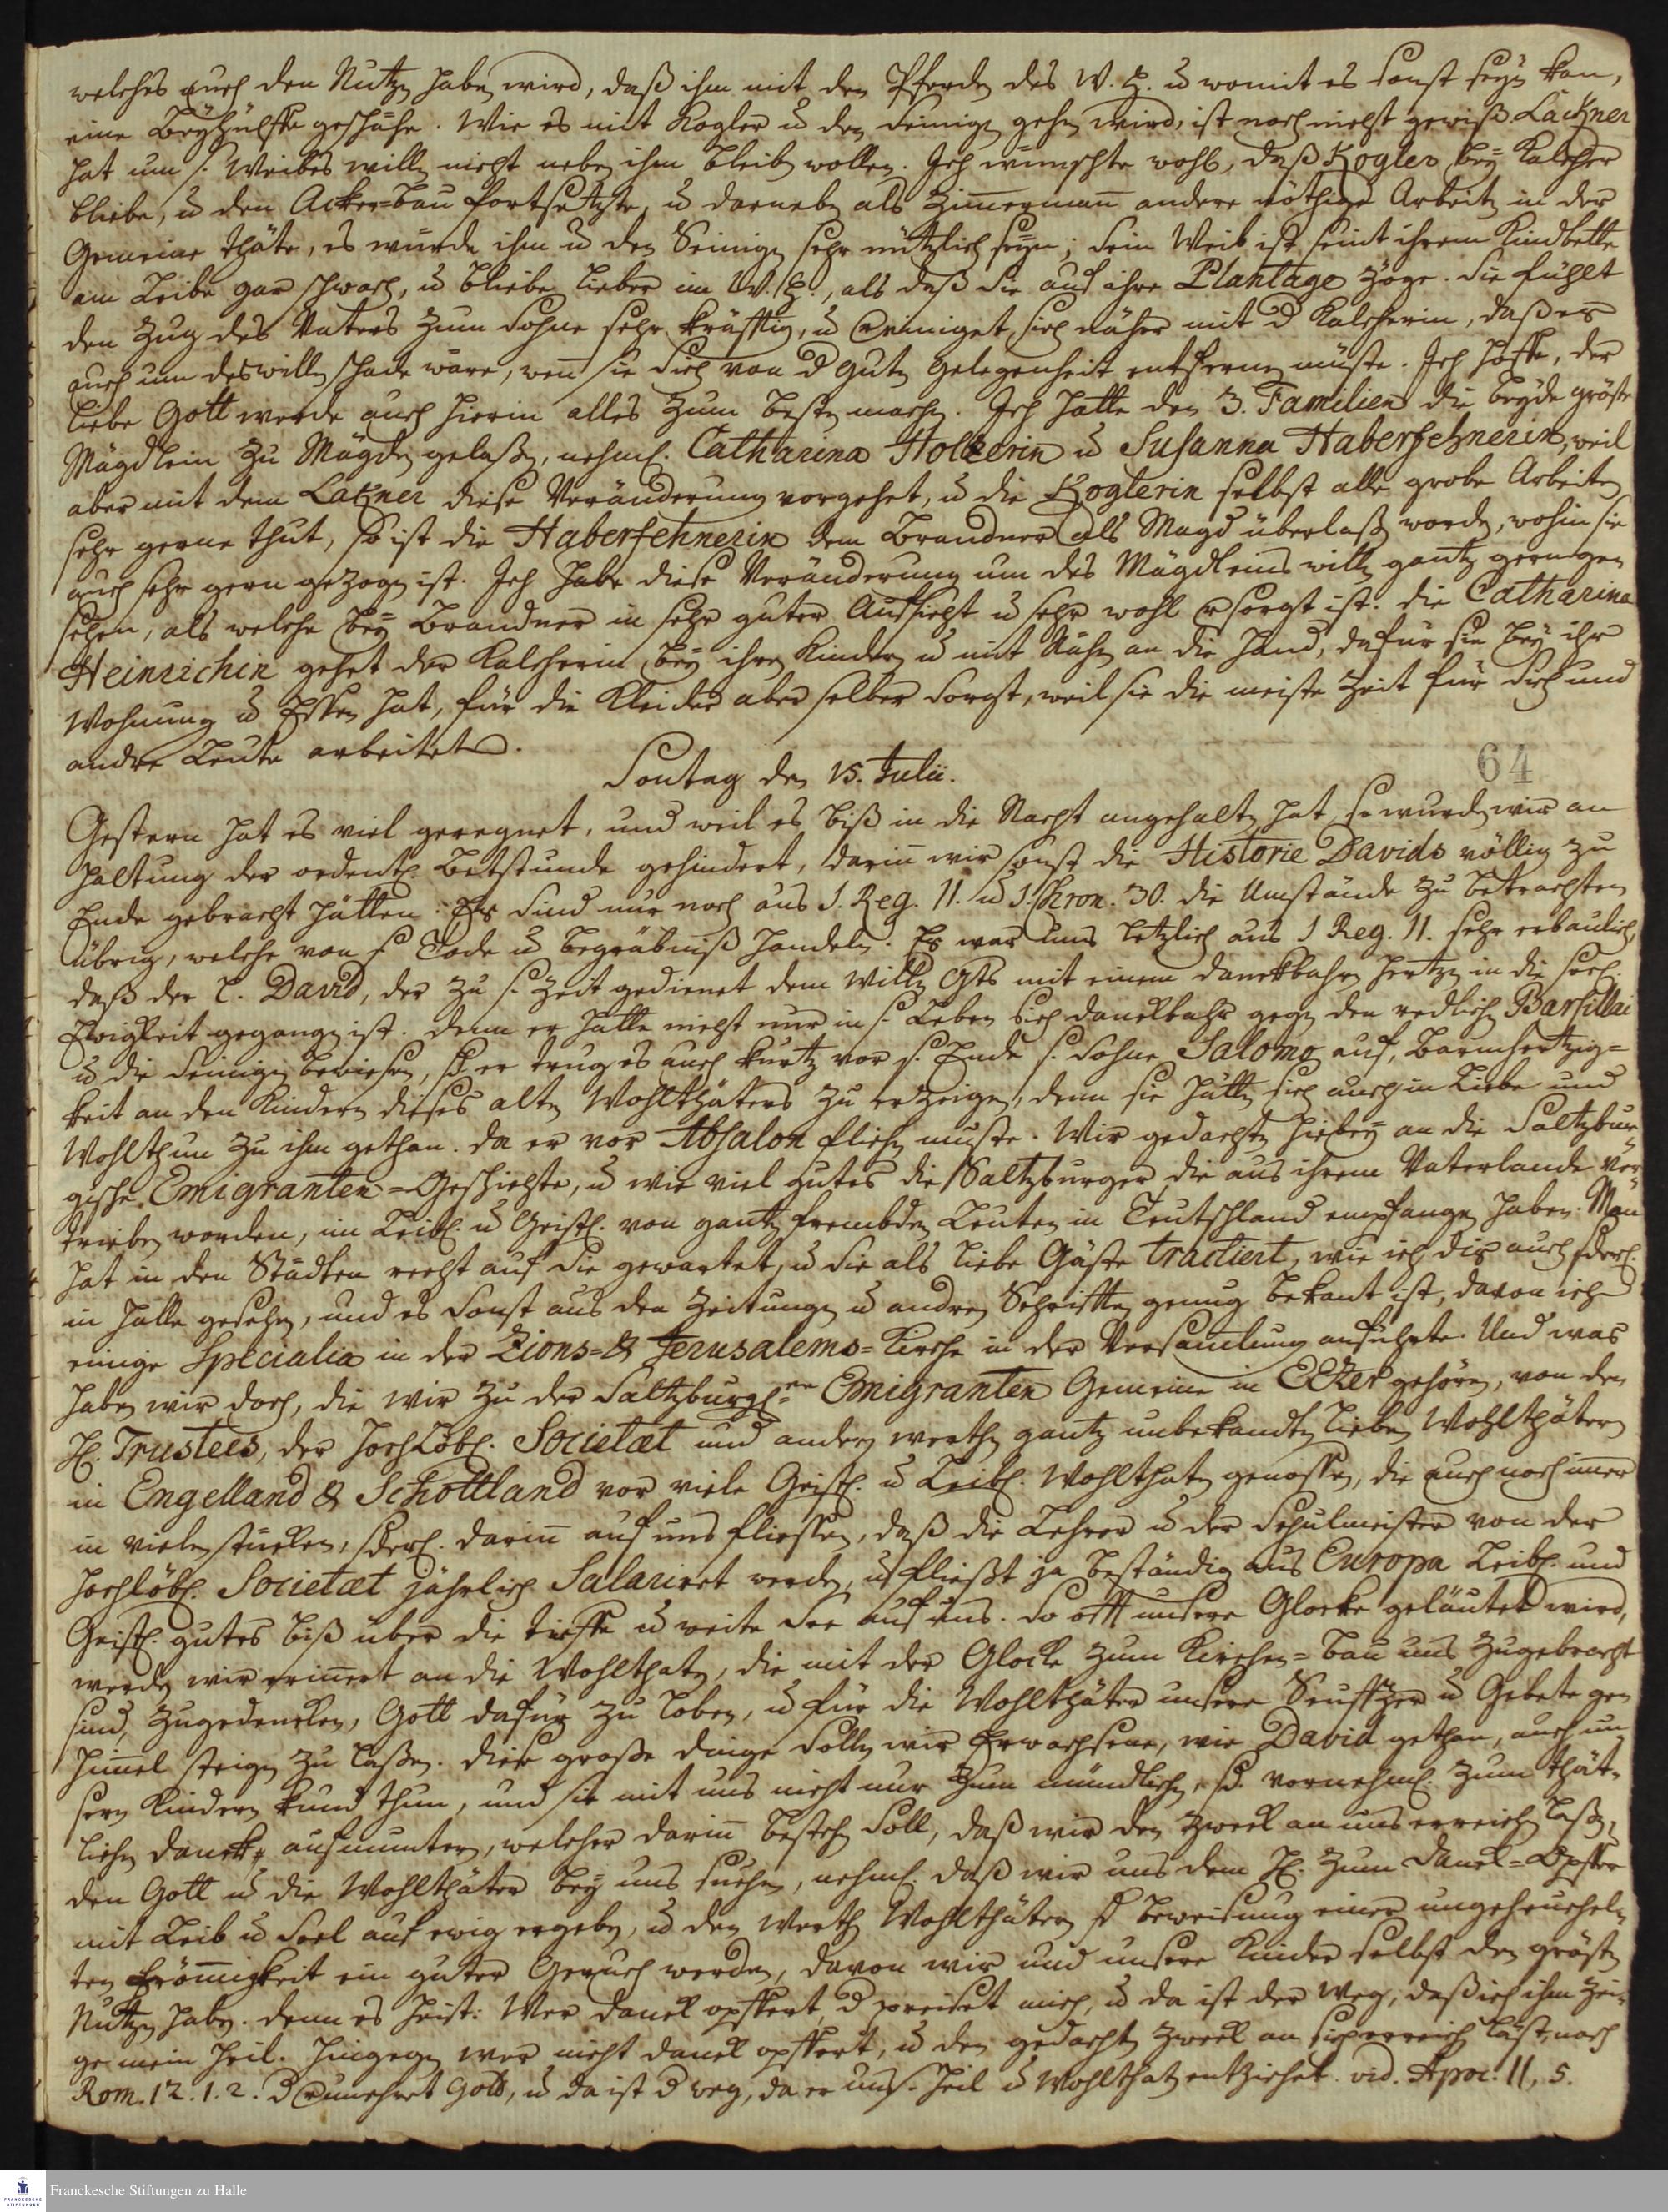 welches auch den Nutzen haben wird, daß ihm mit den Pferden des W. H. u. womit es sonst seyn kan,
eine Beyhülffe geschähe. Wie es mit Kogler u. den Seinigen gehen wird, ist noch nicht gewiß. Lackner
hat um s. Weibes willen nicht neben ihm bleiben wollen. Ich wünschte wohl, daß Kogler bey Kalcher
bliebe, u. den Acker-bau fortsetzte, u. darneben als Zimmermann andere nöthige Arbeit in der
Gemeine thäte, es würde ihm u. den Seinigen sehr nützlich seyn; sein Weib ist seint ihrem Kindbette
am Leibe gar schwach, u. bliebe lieber im W. H., als daß sie auf ihre Plantage zöge. Sie fühlt
den Zug des Vaters zum Sohne sehr kräfftig, u. vereiniget sich näher mit d. Kalcherin, daß es
auch um deswillen schade wäre, wenn sie sich von d. guten Gelegenheit entfernen müste. Ich hoffe, der
liebe Gott werde auch hierin alles zum besten machen. Ich hatte den 3. Familien die beyde gröste
Mägdlein zu Mägden gelaßen, nehml. Catharina Holtzerin u. Susanna Haberfehnerin, weil
aber mit dem Lakner diese Veränderung vorgehet, u. die Koglerin selbst alle grobe Arbeiten
sehr gerne thut, so ist die Haberfehnerin dem Brandner als Magd überlaßen worden, wohin sie
auch sehr gern gezogen ist. Ich habe diese Veränderung um des Mägdleins willen gantz gerne
sehen, als welche bey Brandner in sehr guter Aufsicht u. sehr wohl versorgt ist. Die Catharina
Heinrichin gehet der Kalcherin bey ihren Kindern u. mit Nähen an die Hand, dafür sie bey ihr
Wohnung u. Essen hat, für die Kleider aber selber sorgt, weil sie die meiste Zeit für sich und
andre Leute arbeitet.
64
Sontag den 15. Julii.
Gestern hat es viel geregnet, und weil es biß in die Nacht angehalten hat, so wurden wir an
Haltung der ordentl. Betstunde gehindert, darinn wir sonst die Historie Davids völlig zu
Ende gebracht hätten. Es sind nur noch aus 1. Reg. 11. u. 1. Chron. 30. die Umstände zu betrachten
übrig, welche von s. Tode u. Begräbniß handeln. Es war uns letzlich aus 1 Reg. 11. sehr erbaulich,
daß der l. David, der zu s. Zeit gedienet dem Willen Gottes mit einem danckbahren Hertzen in die seel.
Ewigkeit gegangen ist. Denn er hatte nicht nur in s. Leben sich danckbahr gegen den redlichen Barsillai
u. die Seinigen bewiesen, sondern er trug es auch kurtz vor s. Ende s. Sohne Salomo auf, Barmhertzig=
keit an den Kindern dieses alten Wohlthäters zu erzeigen, denn sie hätten sich auch in Liebe und
Wohlthun zu ihm gethan, da er vor Absalon fliehen muste. Wir gedachten hiebey an die Saltzbur=
gische Emigranten=Geschichte, u. wie viel gutes die Saltzburger die aus ihrem Vaterlande ver=
trieben worden, im Leibl. u. Geistl. von gantz frembden Leuten in Teutschland empfangen haben. Man
hat in den Städten recht auf sie gewartet, u. sie als liebe Gäste tractiert, wie ich dis auch sonderl.
in Halle gesehen, und es sonst aus den Zeitungen u. andren Schrifften genug bekant ist, davon ich
einige Specialia in der Zions= & Jerusalems=Kirche in der Versamlung anführte. Und was
haben wir doch, die wir zu der Saltzburgl. Emigranten Gemeine in EbEzer gehören, von den
H. Trustees, der Hochlöbl. Societaet und andern werthen gantz unbekandten lieben Wohlthätern
in Engelland & Schottland vor viele Geistl. u. Leibl. Wohlthaten genossen, die auch noch immer
in vielen stücken, sonderl. darinn auf uns fliessen, daß die Lehrer u. der Schulmeister von der
Hochlöbl. Societaet jährlich Salariret werden, u. fließt ja beständig aus Europa Leibl. und
Geistl. gutes biß über die tieffe u. weite See auf uns. So offt unsere Glocke geläutet wird,
werden wir erinnert an die Wohlthaten, die mit der Glocke zum Kirchen=bau uns zugebracht
sind, zugedencken, Gott dafür zu loben, u. für die Wohlthäter unsere Seuffzer u. Gebete gen
Himmel steigen zu laßen. Diese große Dinge sollen wir Erwachsene, wie David gethan, auch un=
sern Kindern kund thun, und sie mit uns nicht nur zum mündlichen, sond. vornehml. zum thät=
lichen Dancke aufmuntern, welcher darinn bestehen soll, daß wir den Zweck an uns erreichen laßen,
den Gott u. die Wohlthäter bey uns suchen, nehml. daß wir uns dem H. zum Danck=Opffer
mit Leib u. Seel auf ewig ergeben, u. den werthen Wohlthätern d. Beweisung einer ungeheuchel=
ten Frömmigkeit ein guter Geruch werden, davon wir und unsere Kinder selbst den grösten
Nutzen haben. Denn es heist: Wer Danck opffert, d. preiset mich, u. da ist der Weg, daß ich ihm zei=
ge mein Heil. Hingegen wer nicht Danck opffert, u. den gedachten Zweck an sich erreichen läst, nach
Rom. 12. 1. 2. d. verunehret Gott, u. da ist d. weg, da er uns s. Heil u. Wohlthaten entziehet. vid. Apoc. 11, 5.
Franckesche Stiftungen zu Halle